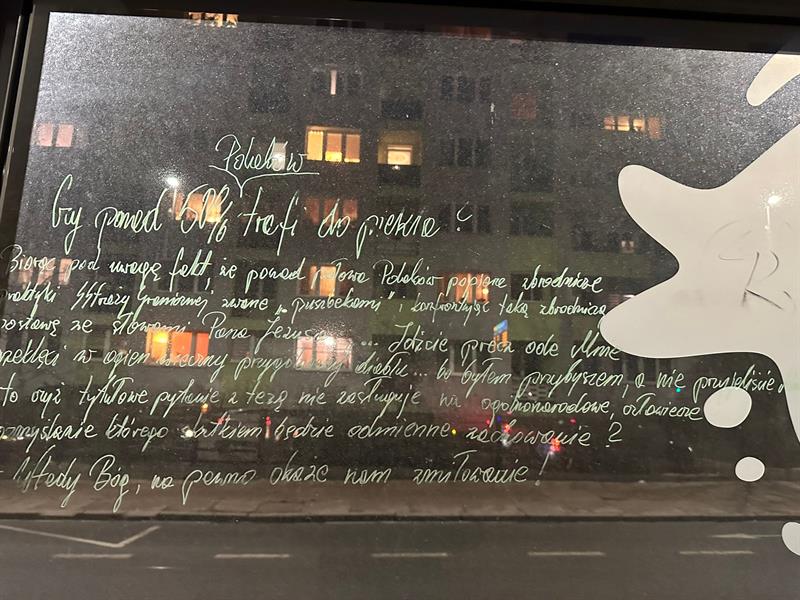 Polaków
Czy ponad 50% trafi do piekła?
Biorąc pod uwagę fakt, że ponad połowa Polaków popiera zbrodnicze
praktyki Straży Granicznej, zwane „puszbekami" i konfrontując taką zbrodniczą
postawę ze słowami Pana Jezusa ... Idźcie precz ode Mnie
przeklęci w ogień wieczny przygotowany diabłu... bo byłem przybyszem, a nie przyjęliście,
to czyż tytułowe pytanie z tezą nie zasługuje na ogólnonarodowe,
przemyślanie którego skutkiem będzie odmienne zachowanie?
- Wtedy Bóg, na pewno okaże nam zmiłowanie!
R